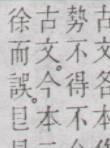 古文各本
勢不得不
古文。今本
徐而誤。㠯